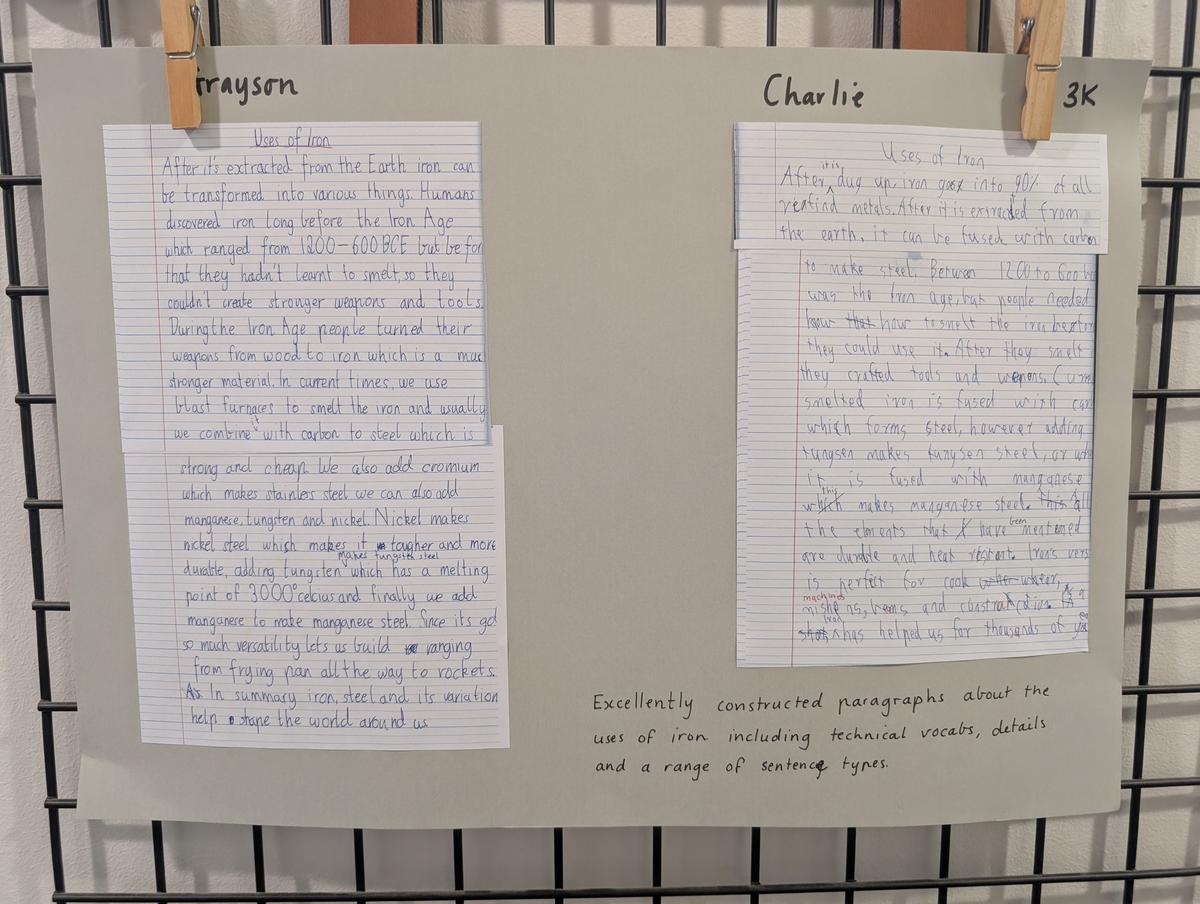 Grayson
Uses of Iron
After it's extracted from the Earth iron can
be transformed into various things. Humans
discovered iron long before the Iron Age
which ranged from 1200-600 BCE but befor
that they hadn't learnt to smelt, so they
couldn't create stronger weapons and tools.
During the Iron Age people turned their
weapons from wood to iron which is a muc
stronger material. In current times, we use
blast furnaces to smelt the iron and usually
we combine it with carbon to steel which is
strong and cheap. We also add cromium
which makes stainless steel we can also add
manganese, tungsten and nickel. Nickel makes
nickel steel which makes it tougher and more
durable, adding tungsten makes tungsten steel which has a melting
point of 3000° celcius and finally we add
manganese to make manganese steel. Since its got
so much versatility lets us build ranging
from frying pan all the way to rockets.
In summary iron, steel and its variation
help shape the world around us
Charlie
3K
Uses of Iron
After it is dug up, iron goes into 90% of all
refind metals. After it is extracted from
the earth, it can be fused with carbon
to make steel. Betwen 1200 to 600 b
was the Iron age, but people needed
know how to smelt the iron befor
they could use it. After they smelt
they crafted tools and wepens. Curr
smelted iron is fused with car
which forms steel, however adding
tungsen makes tungsen steel, or wh
it is fused with manganese
this makes manganese steel. all
the elments that have been mentioned
are durable and heat restant. Iron's vers
is perfect for cook water,
machines, beams and constraction.
Iron has helped us for thousands of
Excellently constructed paragraphs about the
uses of iron including technical vocabs, details
and a range of sentence types.